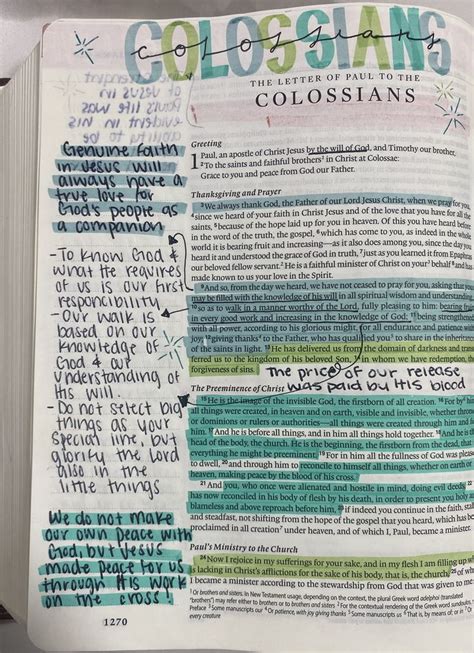 COLOSSIANS
colossians
THE LETTER OF PAUL TO THE
COLOSSIANS
Genuine faith
in Jesus will
always have a
true love for
God's people as
a companion
-To know God &
what He requires
of us is our first
responcibility
-Our walk is
based on our
knowledge of
God & our
understanding of
His will.
-Do not select big
things as your
special line, but
glorify the Lord
also in the
little things
We do not make
our own peace with
God, but Jesus
made peace for us
through His work
on the cross!
1270
Greeting
1 Paul, an apostle of Christ Jesus by the will of God, and Timothy our brother,
2 To the saints and faithful brothers1 in Christ at Colossae:
Grace to you and peace from God our Father.
Thanksgiving and Prayer
3 We always thank God, the Father of our Lord Jesus Christ, when we pray for you,
4 since we heard of your faith in Christ Jesus and of the love that you have for all the
saints, 5 because of the hope laid up for you in heaven. Of this you have heard before
in the word of the truth, the gospel, 6 which has come to you, as indeed in the whole
world it is bearing fruit and increasing—as it also does among you, since the day you
heard it and understood the grace of God in truth, 7 just as you learned it from Epaphras
our beloved fellow servant.2 He is a faithful minister of Christ on your3 behalf 8 and has
made known to us your love in the Spirit.
9 And so, from the day we heard, we have not ceased to pray for you, asking that you
may be filled with the knowledge of his will in all spiritual wisdom and understanding,
10 so as to walk in a manner worthy of the Lord, fully pleasing to him: bearing fruit
in every good work and increasing in the knowledge of God; 11 being strengthened
with all power, according to his glorious might, for all endurance and patience with
joy; 12 giving thanks4 to the Father, who has qualified you5 to share in the inheritance
of the saints in light. 13 He has delivered us from the domain of darkness and trans-
ferred us to the kingdom of his beloved Son, 14 in whom we have redemption, the
forgiveness of sins.
The price of our release
was paid by His blood
The Preeminence of Christ
15 He is the image of the invisible God, the firstborn of all creation. 16 For by6 him
all things were created, in heaven and on earth, visible and invisible, whether thrones
or dominions or rulers or authorities—all things were created through him and for
him. 17 And he is before all things, and in him all things hold together. 18 And he is the
head of the body, the church. He is the beginning, the firstborn from the dead, that in
everything he might be preeminent. 19 For in him all the fullness of God was pleased
to dwell, 20 and through him to reconcile to himself all things, whether on earth or in
heaven, making peace by the blood of his cross.
21 And you, who once were alienated and hostile in mind, doing evil deeds, 22 he
has now reconciled in his body of flesh by his death, in order to present you holy and
blameless and above reproach before him, 23 if indeed you continue in the faith, stable
and steadfast, not shifting from the hope of the gospel that you heard, which has been
proclaimed in all creation7 under heaven, and of which I, Paul, became a minister.
Paul's Ministry to the Church
24 Now I rejoice in my sufferings for your sake, and in my flesh I am filling up what
is lacking in Christ's afflictions for the sake of his body, that is, the church, 25 of which
I became a minister according to the stewardship from God that was given to me
1 Or brothers and sisters. In New Testament usage, depending on the context, the plural Greek word adelphoi (translated
"brothers") may refer either to brothers or to brothers and sisters